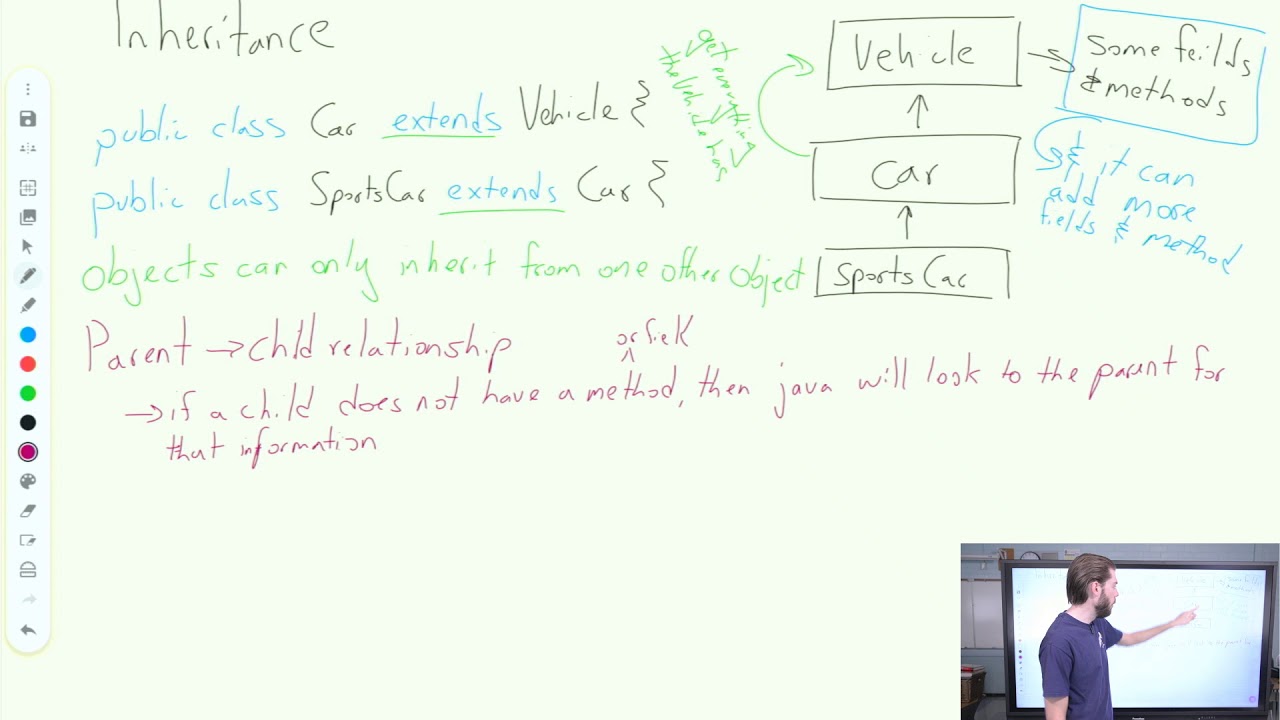 Inheritance
public class Car extends Vehicle {
public class SportsCar extends Car {
objects can only inherit from one other object
get everything
the Vehicle has
Vehicle
Car
SportsCar
Some feilds
& methods
& it can
add more
fields & method
Parent → child relationship
or field
→ if a child does not have a method, then java will look to the parent for
that information